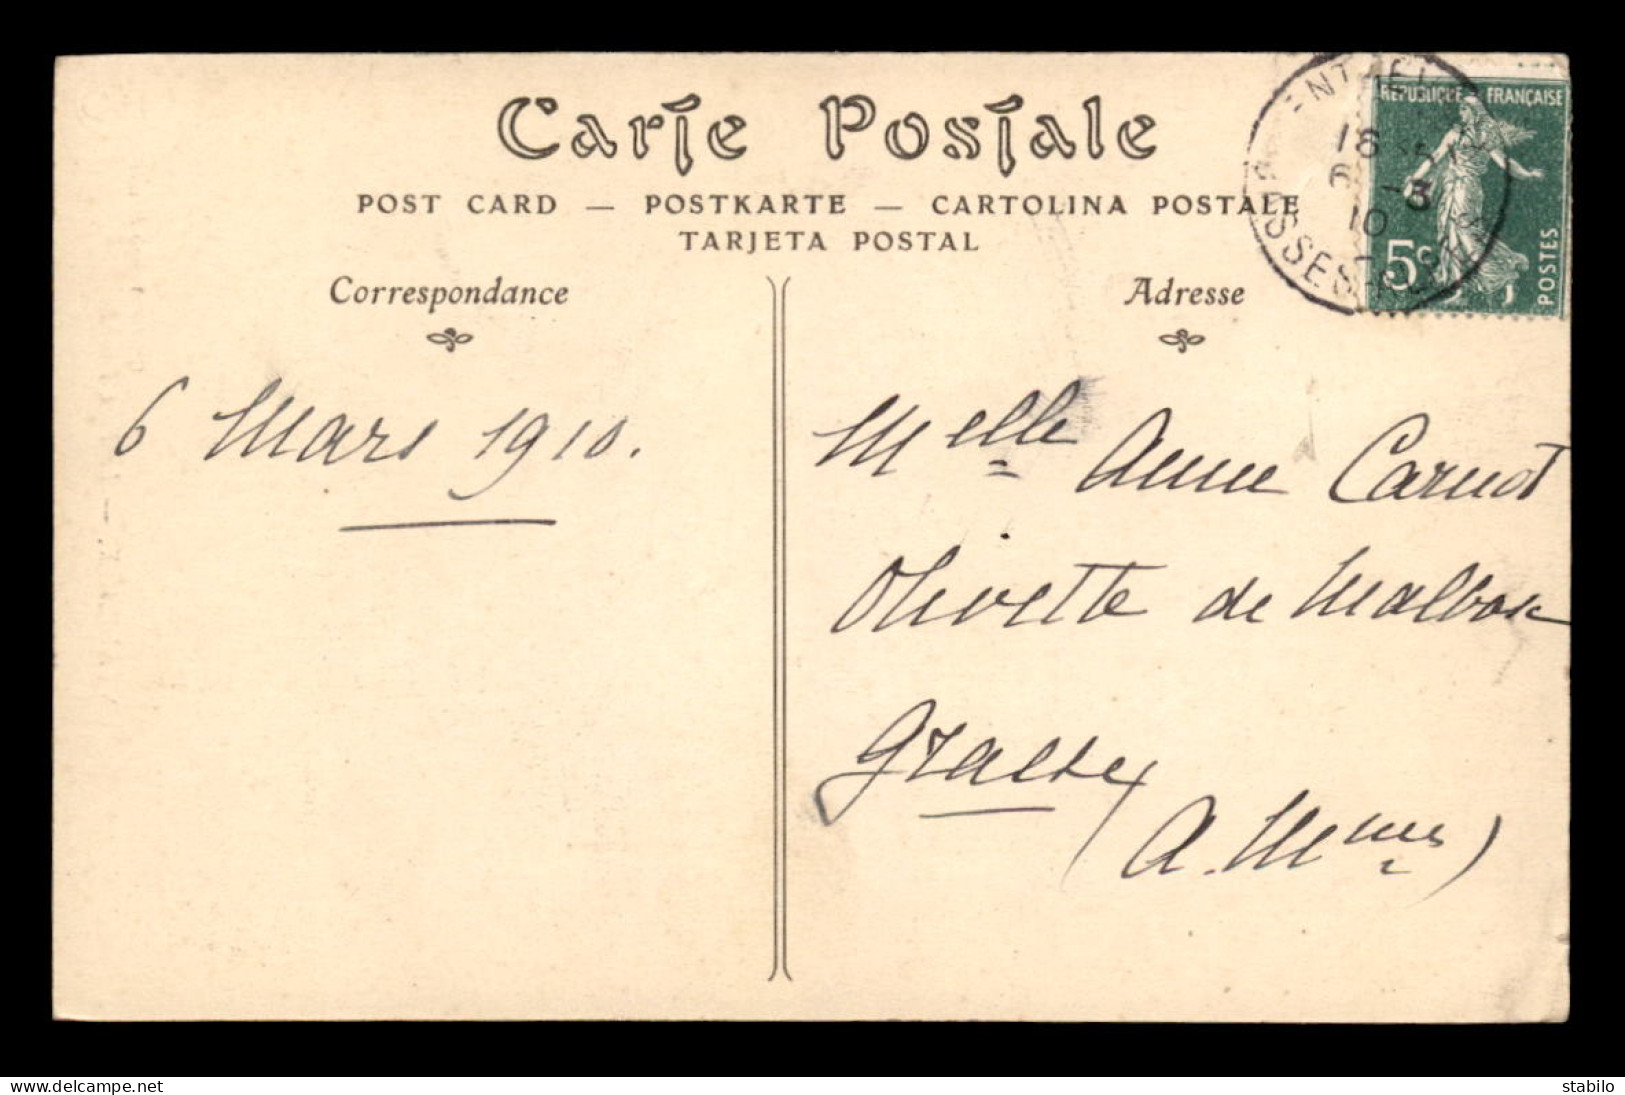 Carte Postale
POST CARD — POSTKARTE — CARTOLINA POSTALE
TARJETA POSTAL
Correspondance
Adresse
6 Mars 1910.
Melle Anne Carnot
Olivette de Malbosc
Grasse
(A. Mmes)
REPUBLIQUE FRANÇAISE
5c
POSTES
18
6 -3
10
www.delcampe.net
stabilo